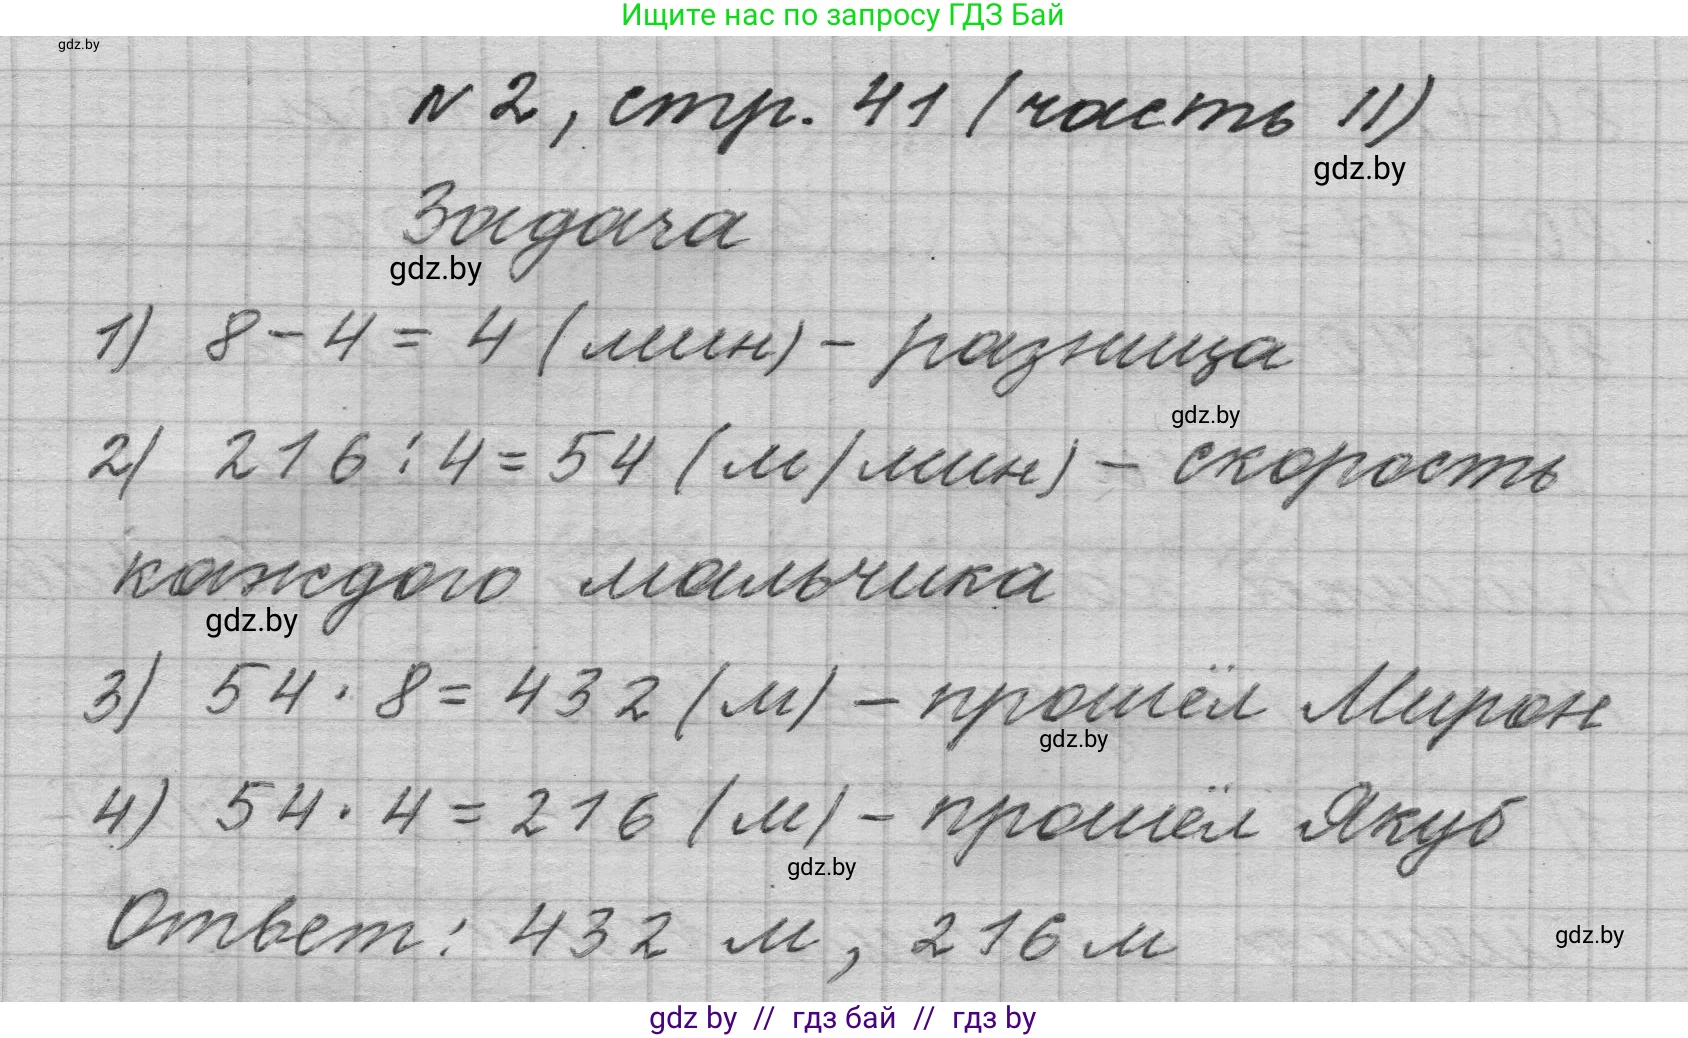 Ищите нас по запросу ГДЗ Бай
gdz.by
№ 2, стр. 41 (часть II)
gdz.by
Задача
gdz.by
1) 8 - 4 = 4 (мин) - разница
gdz.by
2) 216 : 4 = 54 (м/мин) - скорость
каждого мальчика
gdz.by
3) 54 · 8 = 432 (м) - прошёл Мирон
gdz.by
4) 54 · 4 = 216 (м) - прошёл Якуб
gdz.by
Ответ: 432 м, 216 м
gdz.by
gdz by // гдз бай // гдз by